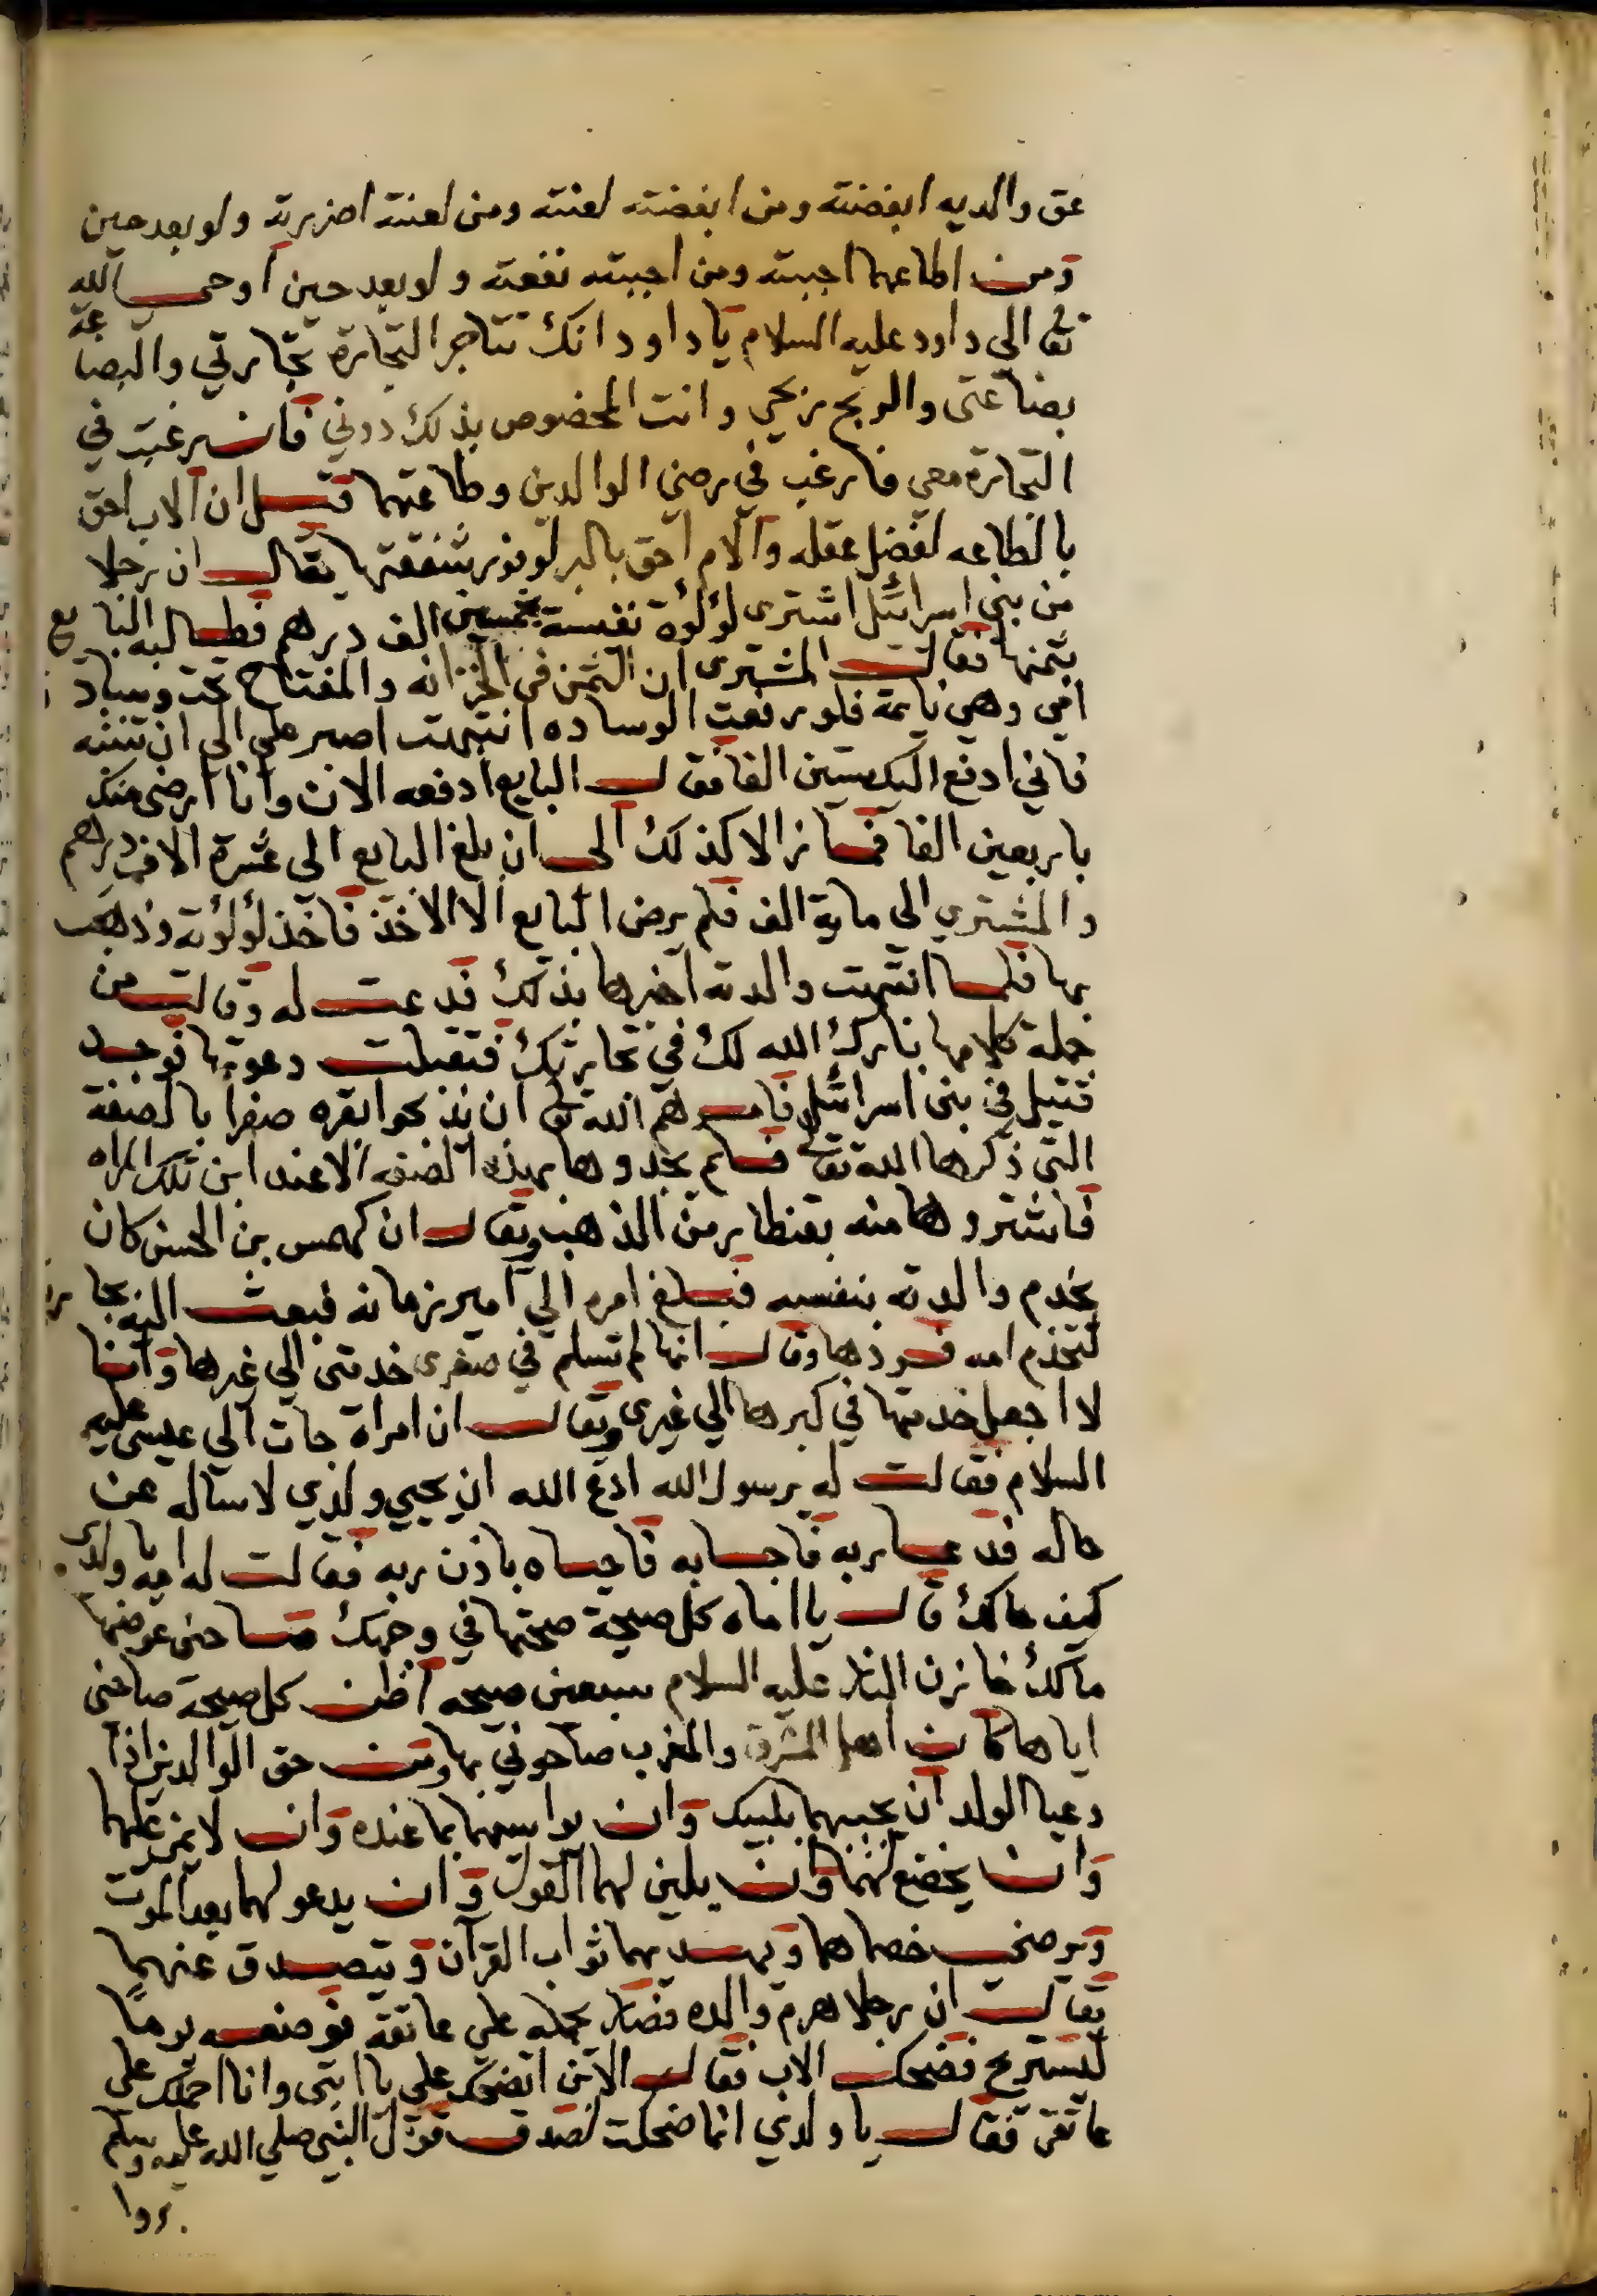 عق والديه ابغضته ومن ابغضته لعنته ومن لعنته اضررته ولو بعد حين
ومن اطاعهما احببته ومن احببته نفعته ولو بعد حين اوحى الله
تعالى الي داود عليه السلام يا داود انك تتاجر التجارة تجارتي والبضاعة
بضاعتى والربح ربحي وانت المخصوص بذلك دوني فان رغبت في
التجارة معي فارغب في رضي الوالدين وطاعتهما قيل ان الاب احق
بالطاعه لفضل عقله والام احق بالبر لوفور شفقتها يقال ان رجلا
من بني اسرائيل اشترى لؤلؤة نفسية بخمسين الف درهم فطالبه البايع
بثمنها فقال المشترى ان الثمن في الخزانه والمفتاح تحت وسادة
امي وهي نايمة فلو رفعت الوساده انتبهت اصبر علي الى ان تنتبه
فاني ادفع اليك ستين الفا فقال البايع ادفعه الان وانا ارضى منك
باربعين الفا فما زالا كذلك الى ان بلغ البايع الى عشرة الاف درهم
والمشتري الى ماية الف فلم يرض البايع الا الاخذ فاخذ لؤلؤته وذهب
بها فلما انتبهت والدته اخبرها بذلك فدعت له وقالت من
جملة كلامها بارك الله لك في تجارتك فتقبلت دعوتها فوجد
قتيل في بنى اسرائيل فامرهم الله تعالى ان يذبحوا بقره صفرا بالصفة
التى ذكرها الله تعالى فلم يجدوها بهذه الصفه الا عند ابن تلك المراه
فاشتروها منه بقنطار من الذهب ويقال ان كهمس بن الحسن كان
يخدم والدته بنفسه فبلغ امره الي امير زمانه فبعث اليه بجارية
لتخدم امه فردها وقال انها لم تسلم في صغرى خدمتى الي غيرها وانا
لا اجعل خدمتها في كبرها الي غيرى ويقال ان امراة جات الى عيسى عليه
السلام فقالت له يرسول الله ادع الله ان يحيي ولدي لاساله عن
حاله فدعا ربه فاجابه فاحياه باذن ربه فقالت له امه يا ولدى
كيف حالك قال يا اماه كل صيحة صحتها في وجهك صاحنى عوضها
مالك خازن النار عليه السلام سبعين صيحه اظن كل صيحة صاحنى
اياها كان اهل المشرق والمغرب صاحوني بها ومن حق الوالدين اذا
دعيا الولد ان يجيبهما بلبيك وان يواسيهما بما عنده وان لا يمن عليهما
وان يخضع لهما وان يلين لهما القول وان يدعو لهما بعد الموت
ويرضي خصماهما ويهدي لهما ثواب القرآن ويتصدق عنهما
يقال ان رجلا هرم والده فصار يحمله علي عاتقه فوضعه يوما
ليستريح فضحك الاب فقال الابن اتضحك علي يا ابتى وانا احملك على
عاتقى فقال يا ولدي انما ضحكت لصدق قول النبي صلي الله عليه وسلم
بروا